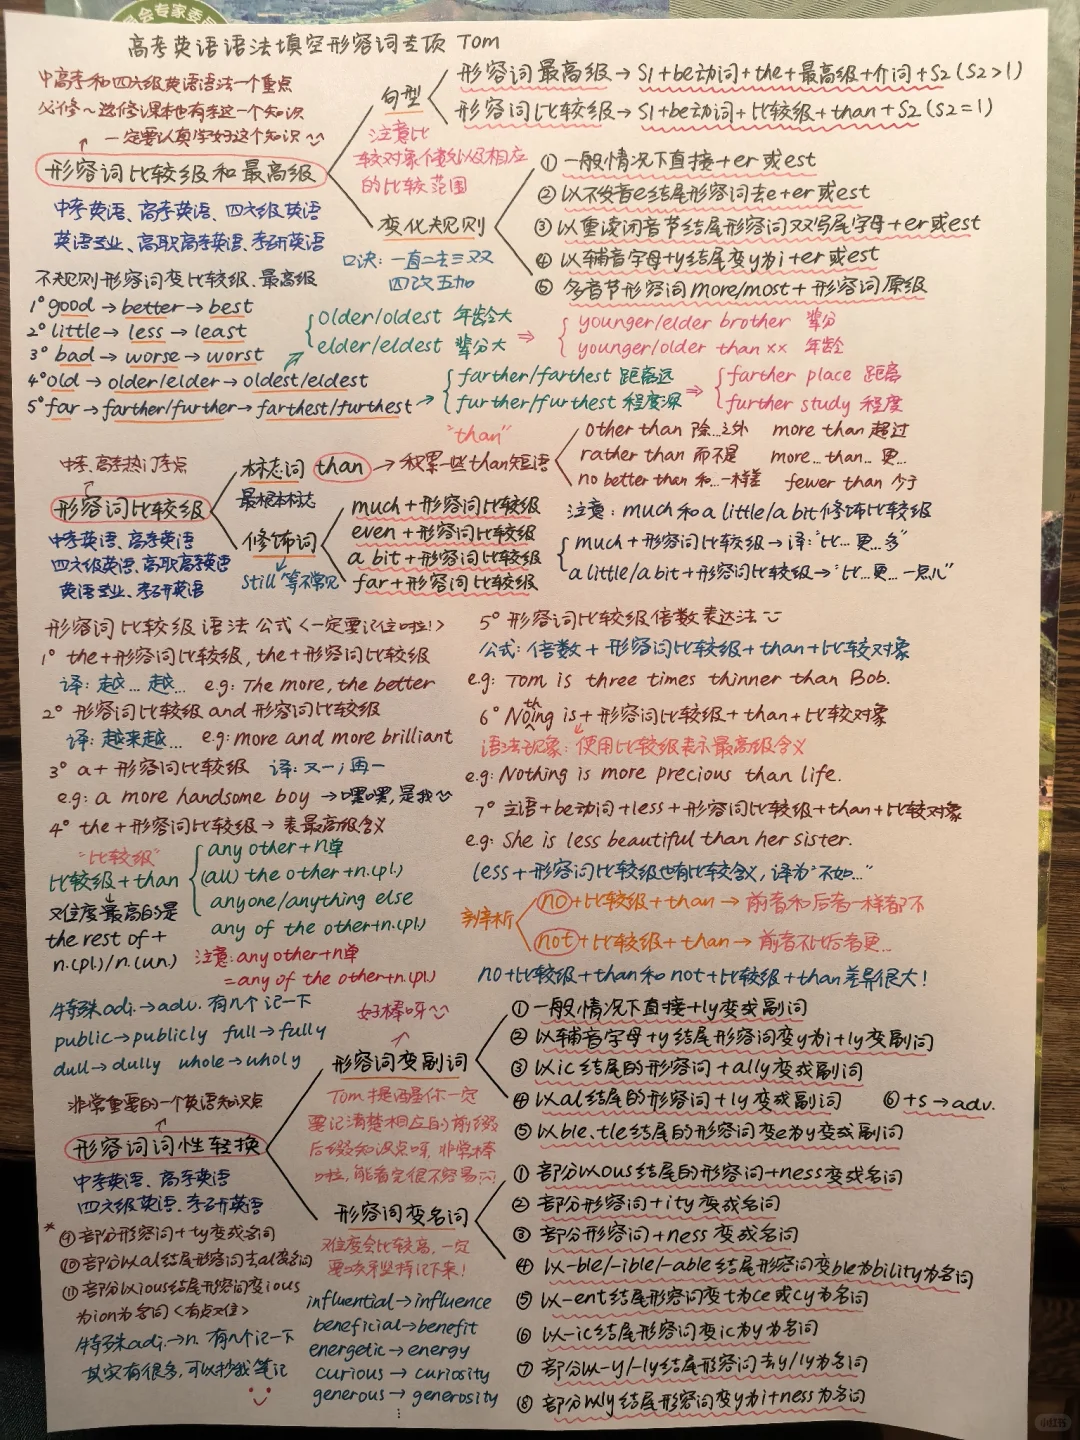 高考英语语法填空形容词专项 Tom
中高考和四六级英语语法一个重点
必修~选修课本也有考这一个知识
一定要认真学好这个知识
形容词比较级和最高级
中考英语、高考英语、四六级英语
英语专业、高职高考英语、考研英语
句型
形容词最高级→S1+be动词+the+最高级+介词+S2(S2>1)
形容词比较级→S1+be动词+比较级+than+S2(S2=1)
注意比
较对象个数以及相应
的比较范围
变化规则
口诀:一直二去三双
四改五加
① 一般情况下直接+er或est
② 以不发音e结尾形容词去e+er或est
③ 以重读闭音节结尾形容词双写尾字母+er或est
④ 以辅音字母+y结尾变y为i+er或est
⑤ 多音节形容词more/most+形容词原级
不规则形容词变比较级、最高级
1° good→better→best
2° little→less→least
3° bad→worse→worst
4° old→older/elder→oldest/eldest
5° far→farther/further→farthest/furthest
older/oldest 年龄大
elder/eldest 辈分大
younger/elder brother 辈分
younger/older than xx 年龄
farther/farthest 距离远
further/furthest 程度深
farther place 距离
further study 程度
中考、高考热门考点
形容词比较级
中考英语、高考英语
四六级英语、高职高考英语
英语专业、考研英语
标志词 than→积累一些than短语
最根本标志
"than"
other than 除…之外 more than 超过
rather than 而不是 more…than… 更…
no better than 和…一样差 fewer than 少于
修饰词
still 等不常见
much+形容词比较级
even+形容词比较级
a bit+形容词比较级
far+形容词比较级
注意:much和a little/a bit修饰比较级
much+形容词比较级→译:"比…更…多"
a little/a bit+形容词比较级→"比…更…一点儿"
形容词比较级语法公式<一定要记住啦!>
1° the+形容词比较级,the+形容词比较级
译:越…越… e.g: The more, the better
2° 形容词比较级and形容词比较级
译:越来越… e.g: more and more brilliant
3° a+形容词比较级 译:又一;再一
e.g: a more handsome boy→嘿嘿,是我
4° the+形容词比较级→表最高级含义
"比较级"
比较级+than
any other+n单
(all) the other+n.(pl.)
anyone/anything else
any of the other+n.(pl)
难度最高的是
the rest of+
n.(pl.)/n.(un.)
注意:any other+n单
=any of the other+n.(pl)
5° 形容词比较级倍数表达法
公式:倍数+形容词比较级+than+比较对象
e.g: Tom is three times thinner than Bob.
6° Nothing is+形容词比较级+than+比较对象
语法现象:使用比较级表示最高级含义
e.g: Nothing is more precious than life.
7° 主语+be动词+less+形容词比较级+than+比较对象
e.g: She is less beautiful than her sister.
less+形容词比较级也有比较含义,译为"不如…"
辨析
no+比较级+than→前者和后者一样都不
not+比较级+than→前者不比后者更…
no+比较级+than和not+比较级+than差异很大!
特殊adj.→adv. 有几个记一下
public→publicly full→fully
dull→dully whole→wholy
非常重要的一个英语知识点
形容词词性转换
中考英语、高考英语
四六级英语、考研英语
好棒呀
形容词变副词
Tom提醒你一定
要记清楚相应的前缀
后缀知识点呀,非常棒
啦,能看完很不容易
① 一般情况下直接+ly变成副词
② 以辅音字母+y结尾形容词变y为i+ly变副词
③ 以ic结尾的形容词+ally变成副词
④ 以al结尾的形容词+ly变成副词 ⑥ +s→adv.
⑤ 以ble、tle结尾的形容词变e为y变成副词
形容词变名词
难度会比较高,一定
要坚持记下来!
① 部分以ous结尾的形容词+ness变成名词
② 部分形容词+ity变成名词
③ 部分形容词+ness变成名词
④ 以-ble/-ible/-able结尾形容词变ble为bility为名词
⑤ 以-ent结尾形容词变t为ce或cy为名词
⑥ 以-ic结尾形容词变ic为y为名词
⑦ 部分以-y/-ly结尾形容词去y/ly为名词
⑧ 部分以ly结尾形容词变y为i+ness为名词
* ⑨ 部分形容词+ty变成名词
⑩ 部分以al结尾形容词去al变名词
⑪ 部分以ious结尾形容词变ious
为ion为名词<有点难>
特殊adj.→n. 有几个记一下
其实有很多,可以抄我笔记
influential→influence
beneficial→benefit
energetic→energy
curious→curiosity
generous→generosity
⋮
小红书